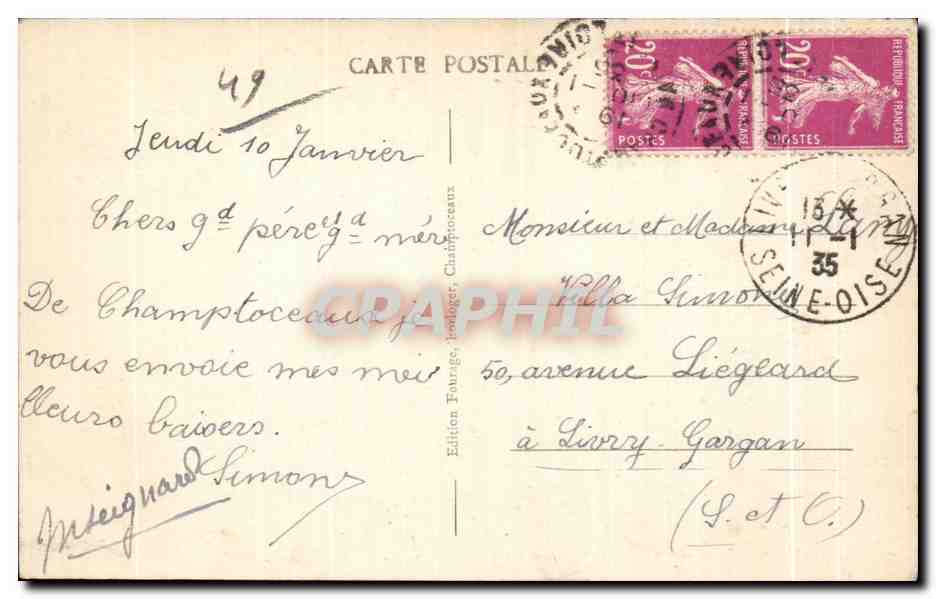 CARTE POSTALE
49
Jeudi 10 Janvier
Chers gd pére et gd mère
De Champtoceaux je
vous envoie mes mei
lleurs baisers.
Simon
Edition Fourage, horloger, Champtoceaux
20c
POSTES
REPUBLIQUE FRANÇAISE
20c
POSTES
REPUBLIQUE FRANÇAISE
13 *
11-1
35
SEINE-OISE
Monsieur et Madame
Villa Simon
50, avenue Liégeard
à Livry-Gargan
(S. et O.)
CPAPHIL